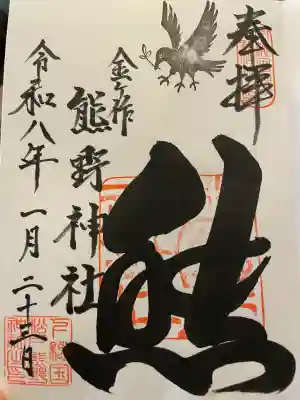 奉拝
熊
金ケ作
熊野神社
令和八年一月二十三日